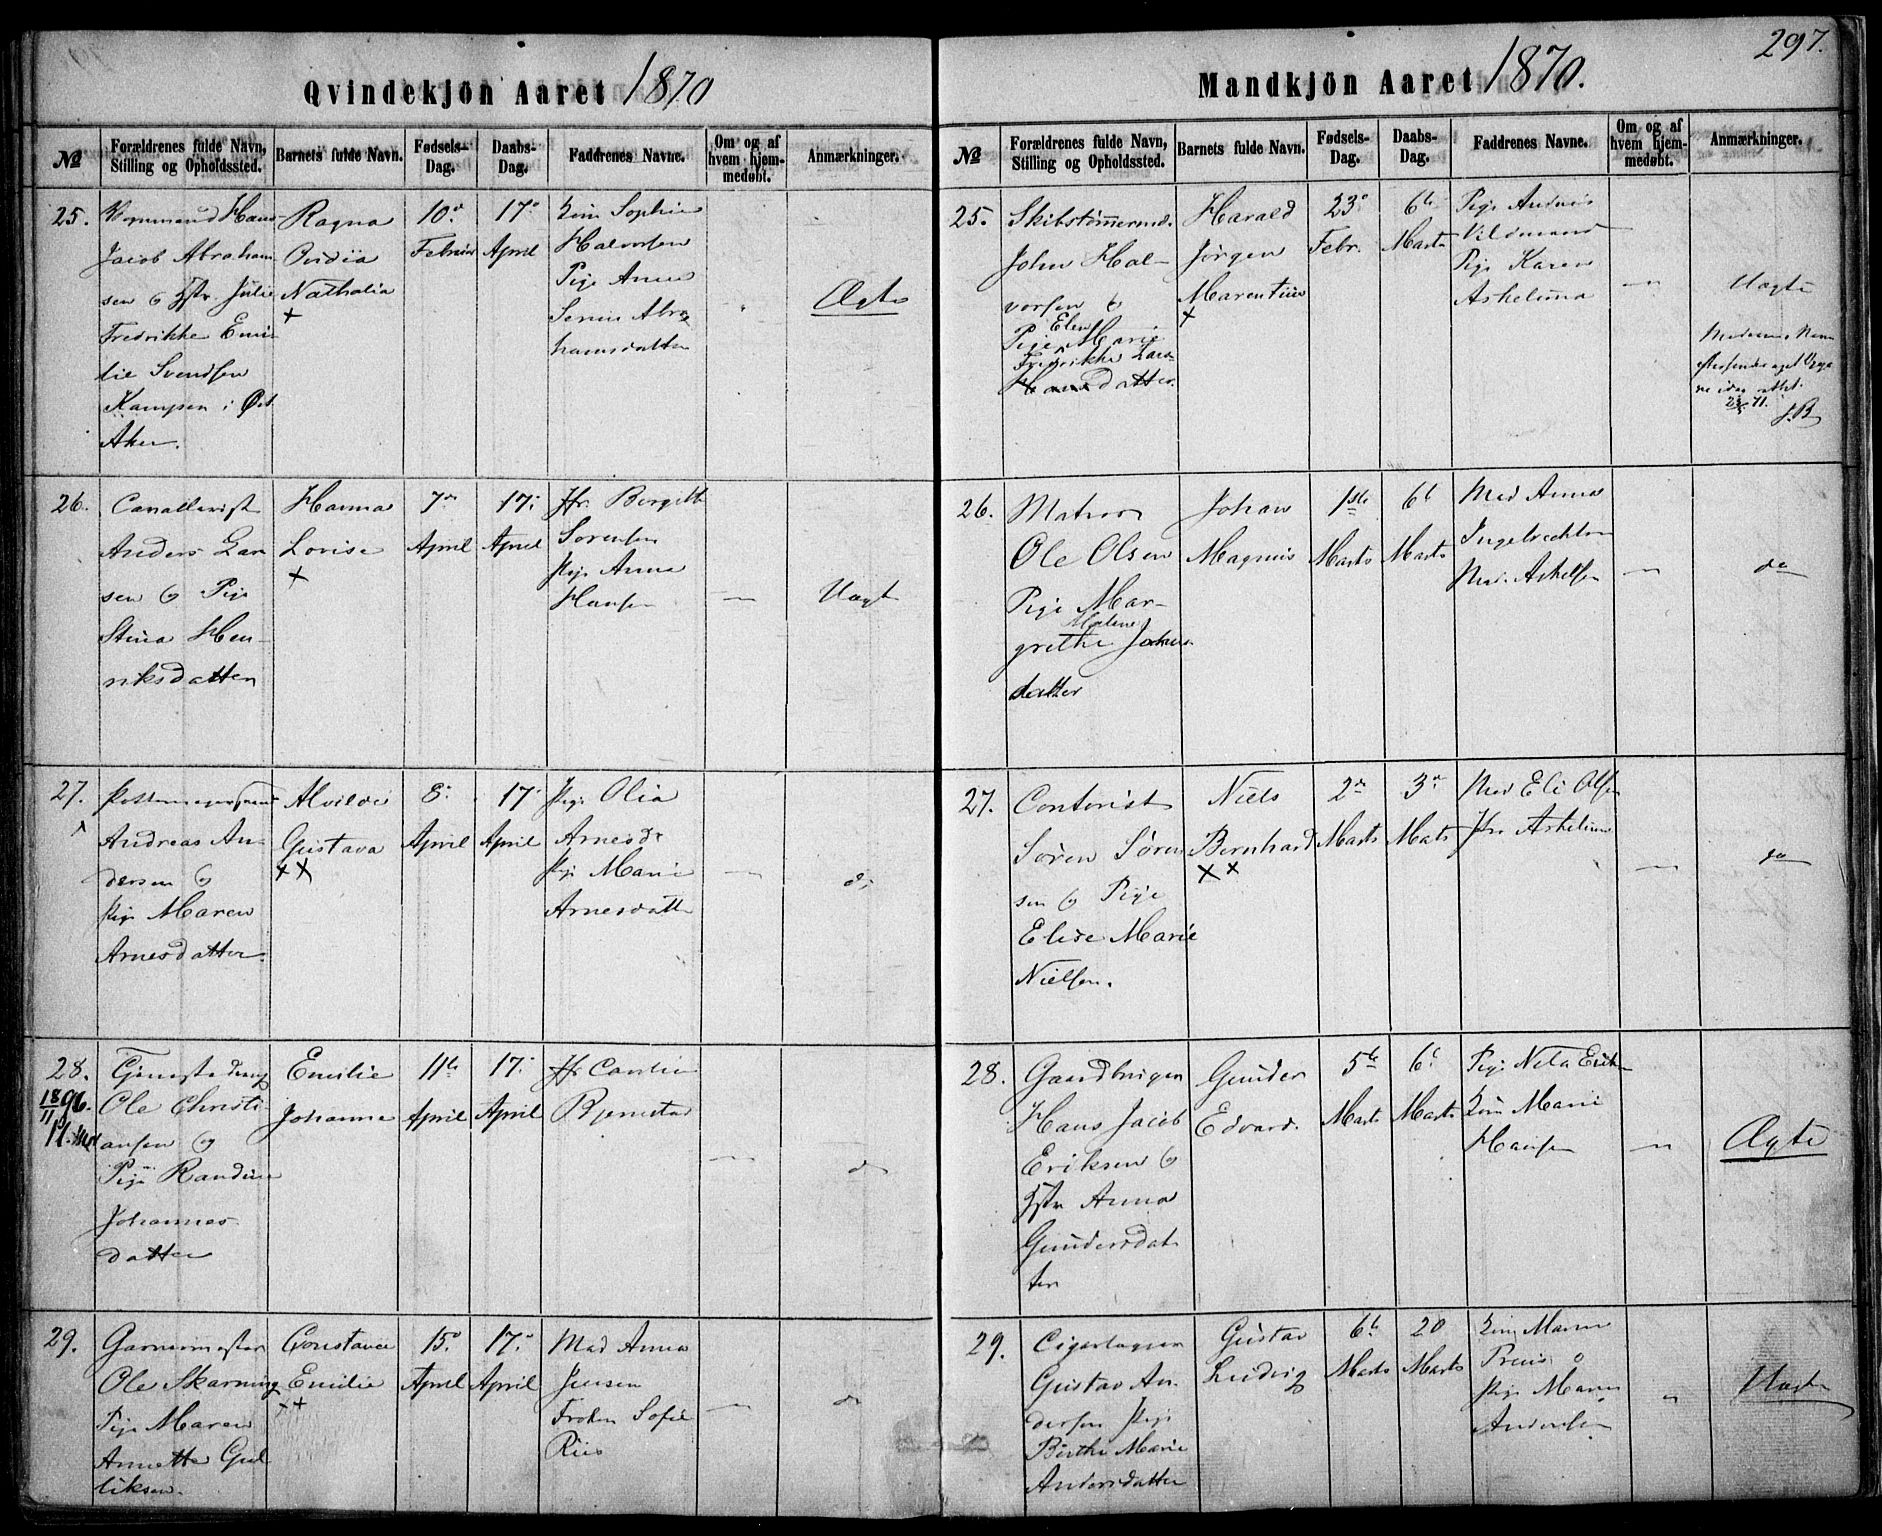 297.
Qvindekjön Aaret 1870
№
Forældrenes fulde Navn,
Stilling og Opholdssted.
Barnets fulde Navn.
Fødsels-
Dag.
Daabs-
Dag.
Faddrenes Navne.
Om og af
hvem hjem-
medøbt.
Anmærkninger.
25.
Jacob Abraham
sen & Hstr Julie
Fredrikke Emi
lie Svendsen
Kampen i Øst
Aker.
Ragna
Ovidia
Nathalia
+
10de
Februar
17de
April
Kone Sophie
Halvorsen
Pige Anne
Serine Abra
hamsdatter
Ægte
26.
Cavallerist
Anders Lar
sen & Pige
Stina Hen-
riksdatter
Hanna
Lovise
+
7de
April
17.
April
Fr. Bergitte
Sørensen
Pige Anna
Hansen
—
Uægt
27.
Andreas An-
dersen &
Pige Maren
Arnesdatter.
Alvilde
Gustava
++
8.
April
17.
April
Pige Olia
Arnesdr
Pige Marie
Arnesdatter
—
do
28.
18/11 96.
Tjenestedreng
Ole Christi
ansen &
Pige Randine
Johannes-
datter
Emilie
Johanne
11te
April
17.
April
Fr Caroline
—
do
29.
Garvermester
Ole Skarning
Pige Maren
Annette Gul
liksen.
Constance
Emilie
++
15de
April
17de
April
Mad Anna
Jensen
Frøken Sofie
Riis
—
do
Mandkjön Aaret 1870.
№
Forældrenes fulde Navn,
Stilling og Opholdssted.
Barnets fulde Navn.
Fødsels-
Dag.
Daabs-
Dag.
Faddrenes Navne.
Om og af
hvem hjem-
medøbt.
Anmærkninger.
25.
Skibstømmermd.
John Hal-
vorsen &
Pige Elen Marie
Fredrikke Lars-
Hansdatter.
Harald
Jørgen
Marentius
+
23de
Febr.
6te
Marts
Pige Andrea
Vildmand
Pige Karen
Askelsena
—
Uægte
Moderens Navn
J.B
26.
Matros
Ole Olsen
Pige Mar-
Malene
grethe Johans
datter
Johan
Magnus
1ste
Marts
6te
Marts
Mad Anna
Ingebrechtsen
Mad. Askelsen
—
do
27.
Contorist
Søren Søren
sen & Pige
Elise Marie
Nielsen.
Niels
Bernhard
++
2de
Marts
3de
Mats
Mad Eli Olsen
—
do
28.
Gaardbruger
Hans Jacob
Eriksen &
Hstr Anna
Gundersdat
ter
Gunder
Edvard.
5te
Marts
6te
Marts
Kone Marie
Hansen
—
Ægte
29.
Gustav An
dersen Pige
Birthe Marie
Andersdatter
Gustav
Ludvig
6te
Marts
20
Marts
Pige Maren
Andersen
Uægte